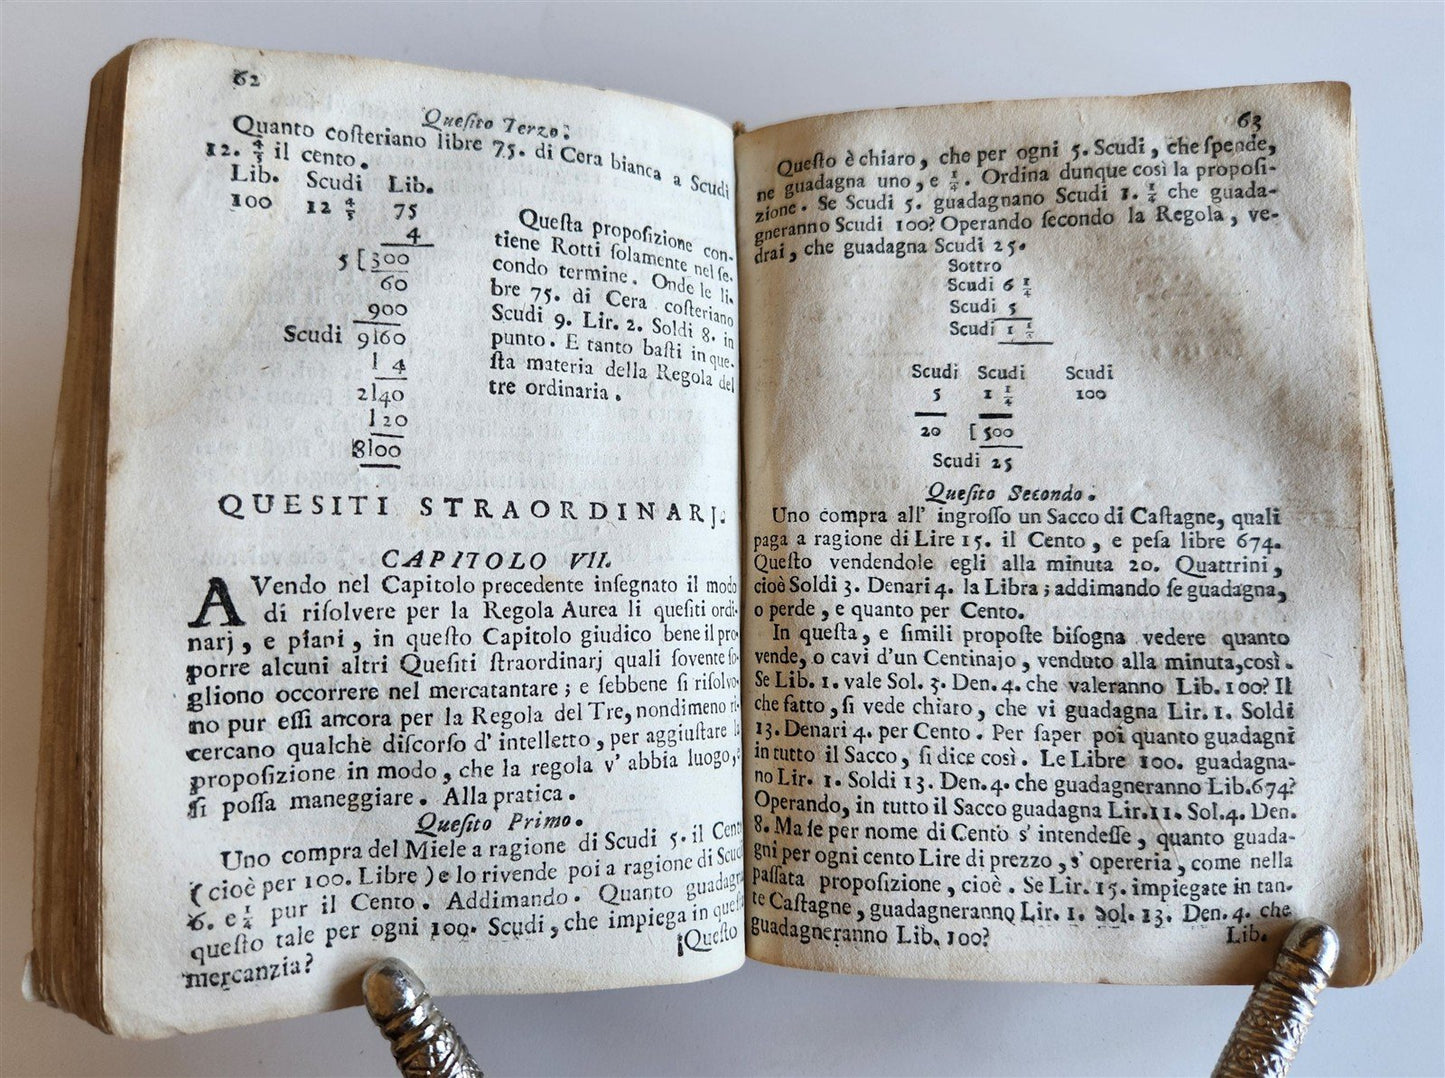 62
Queſito Terzo.
Quanto coſteriano libre 75. di Cera bianca a Scudi
12. 4/5 il cento.
Lib. Scudi Lib.
100 12 4/5 75
4
5 [300
60
900
Scudi 9|60
1 4
2|40
1 20
8|00
Queſta propoſizione con-
tiene Rotti ſolamente nel ſe-
condo termine. Onde le li-
bre 75. di Cera coſteriano
Scudi 9. Lir. 2. Soldi 8. in
punto. E tanto baſti in que-
ſta materia della Regola del
tre ordinaria.
QUESITI STRAORDINARJ.
CAPITOLO VII.
AVendo nel Capitolo precedente inſegnato il modo
di riſolvere per la Regola Aurea li queſiti ordi-
narj, e piani, in queſto Capitolo giudico bene il pro-
porre alcuni altri Queſiti ſtraordinarj quali ſovente ſo-
gliono occorrere nel mercatantare; e ſebbene ſi riſolvo-
no pur eſſi ancora per la Regola del Tre, nondimeno ri-
cercano qualche diſcorſo d' intelletto, per aggiuſtare la
propoſizione in modo, che la regola v' abbia luogo, e
ſi poſſa maneggiare. Alla pratica.
Queſito Primo.
Uno compra del Miele a ragione di Scudi 5. il Cento
(cioè per 100. Libre) e lo rivende poi a ragione di Scudi
6. e 1/4 pur il Cento. Addimando. Quanto guadagna
queſto tale per ogni 100. Scudi, che impiega in queſta
mercanzia?
Queſto
63
Queſto è chiaro, che per ogni 5. Scudi, che ſpende,
ne guadagna uno, e 1/4. Ordina dunque così la propoſi-
zione. Se Scudi 5. guadagnano Scudi 1. 1/4 che guada-
gneranno Scudi 100? Operando ſecondo la Regola, ve-
drai, che guadagna Scudi 25.
Sottro
Scudi 6 1/4
Scudi 5
Scudi 1 1/4
Scudi Scudi Scudi
5 1 1/4 100
20 [500
Scudi 25
Queſito Secondo.
Uno compra all' ingroſſo un Sacco di Caſtagne, quali
paga a ragione di Lire 15. il Cento, e peſa libre 674.
Queſto vendendole egli alla minuta 20. Quattrini,
cioè Soldi 3. Denari 4. la Libra; addimando ſe guadagna,
o perde, e quanto per Cento.
In queſta, e ſimili propoſte biſogna vedere quanto
vende, o cavi d'un Centinajo, venduto alla minuta, così.
Se Lib. 1. vale Sol. 3. Den. 4. che valeranno Lib. 100? Il
che fatto, ſi vede chiaro, che vi guadagna Lir. 1. Soldi
13. Denari 4. per Cento. Per ſaper poi quanto guadagni
in tutto il Sacco, ſi dice così. Le Libre 100. guadagna-
no Lir. 1. Soldi 13. Den. 4. che guadagneranno Lib. 674?
Operando, in tutto il Sacco guadagna Lir. 11. Sol. 4. Den.
8. Ma ſe per nome di Cento s' intendeſſe, quanto guada-
gni per ogni cento Lire di prezzo, s' opereria, come nella
paſſata propoſizione, cioè. Se Lir. 15. impiegate in tan-
te Caſtagne, guadagneranno Lir. 1. Sol. 13. Den. 4. che
guadagneranno Lib. 100?
Lib.